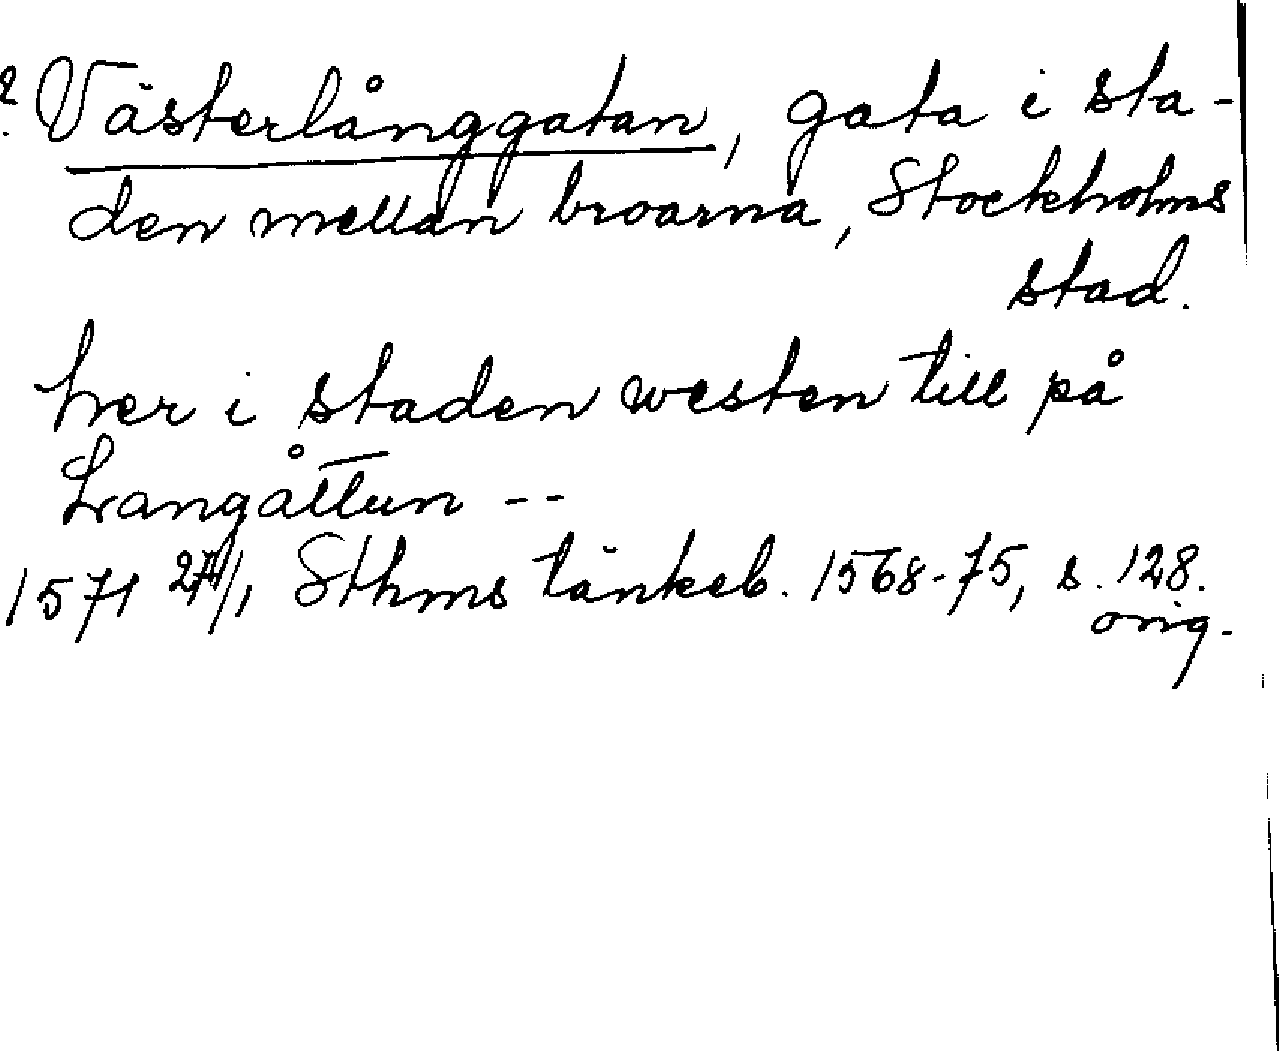 ? Västerlånggatan, gata i sta-
den mellan broarna, Stockholms
stad.
her i staden westen till på
Langåttun --
1571 27/1, Sthms tänkeb. 1568-75, s. 128.
orig.